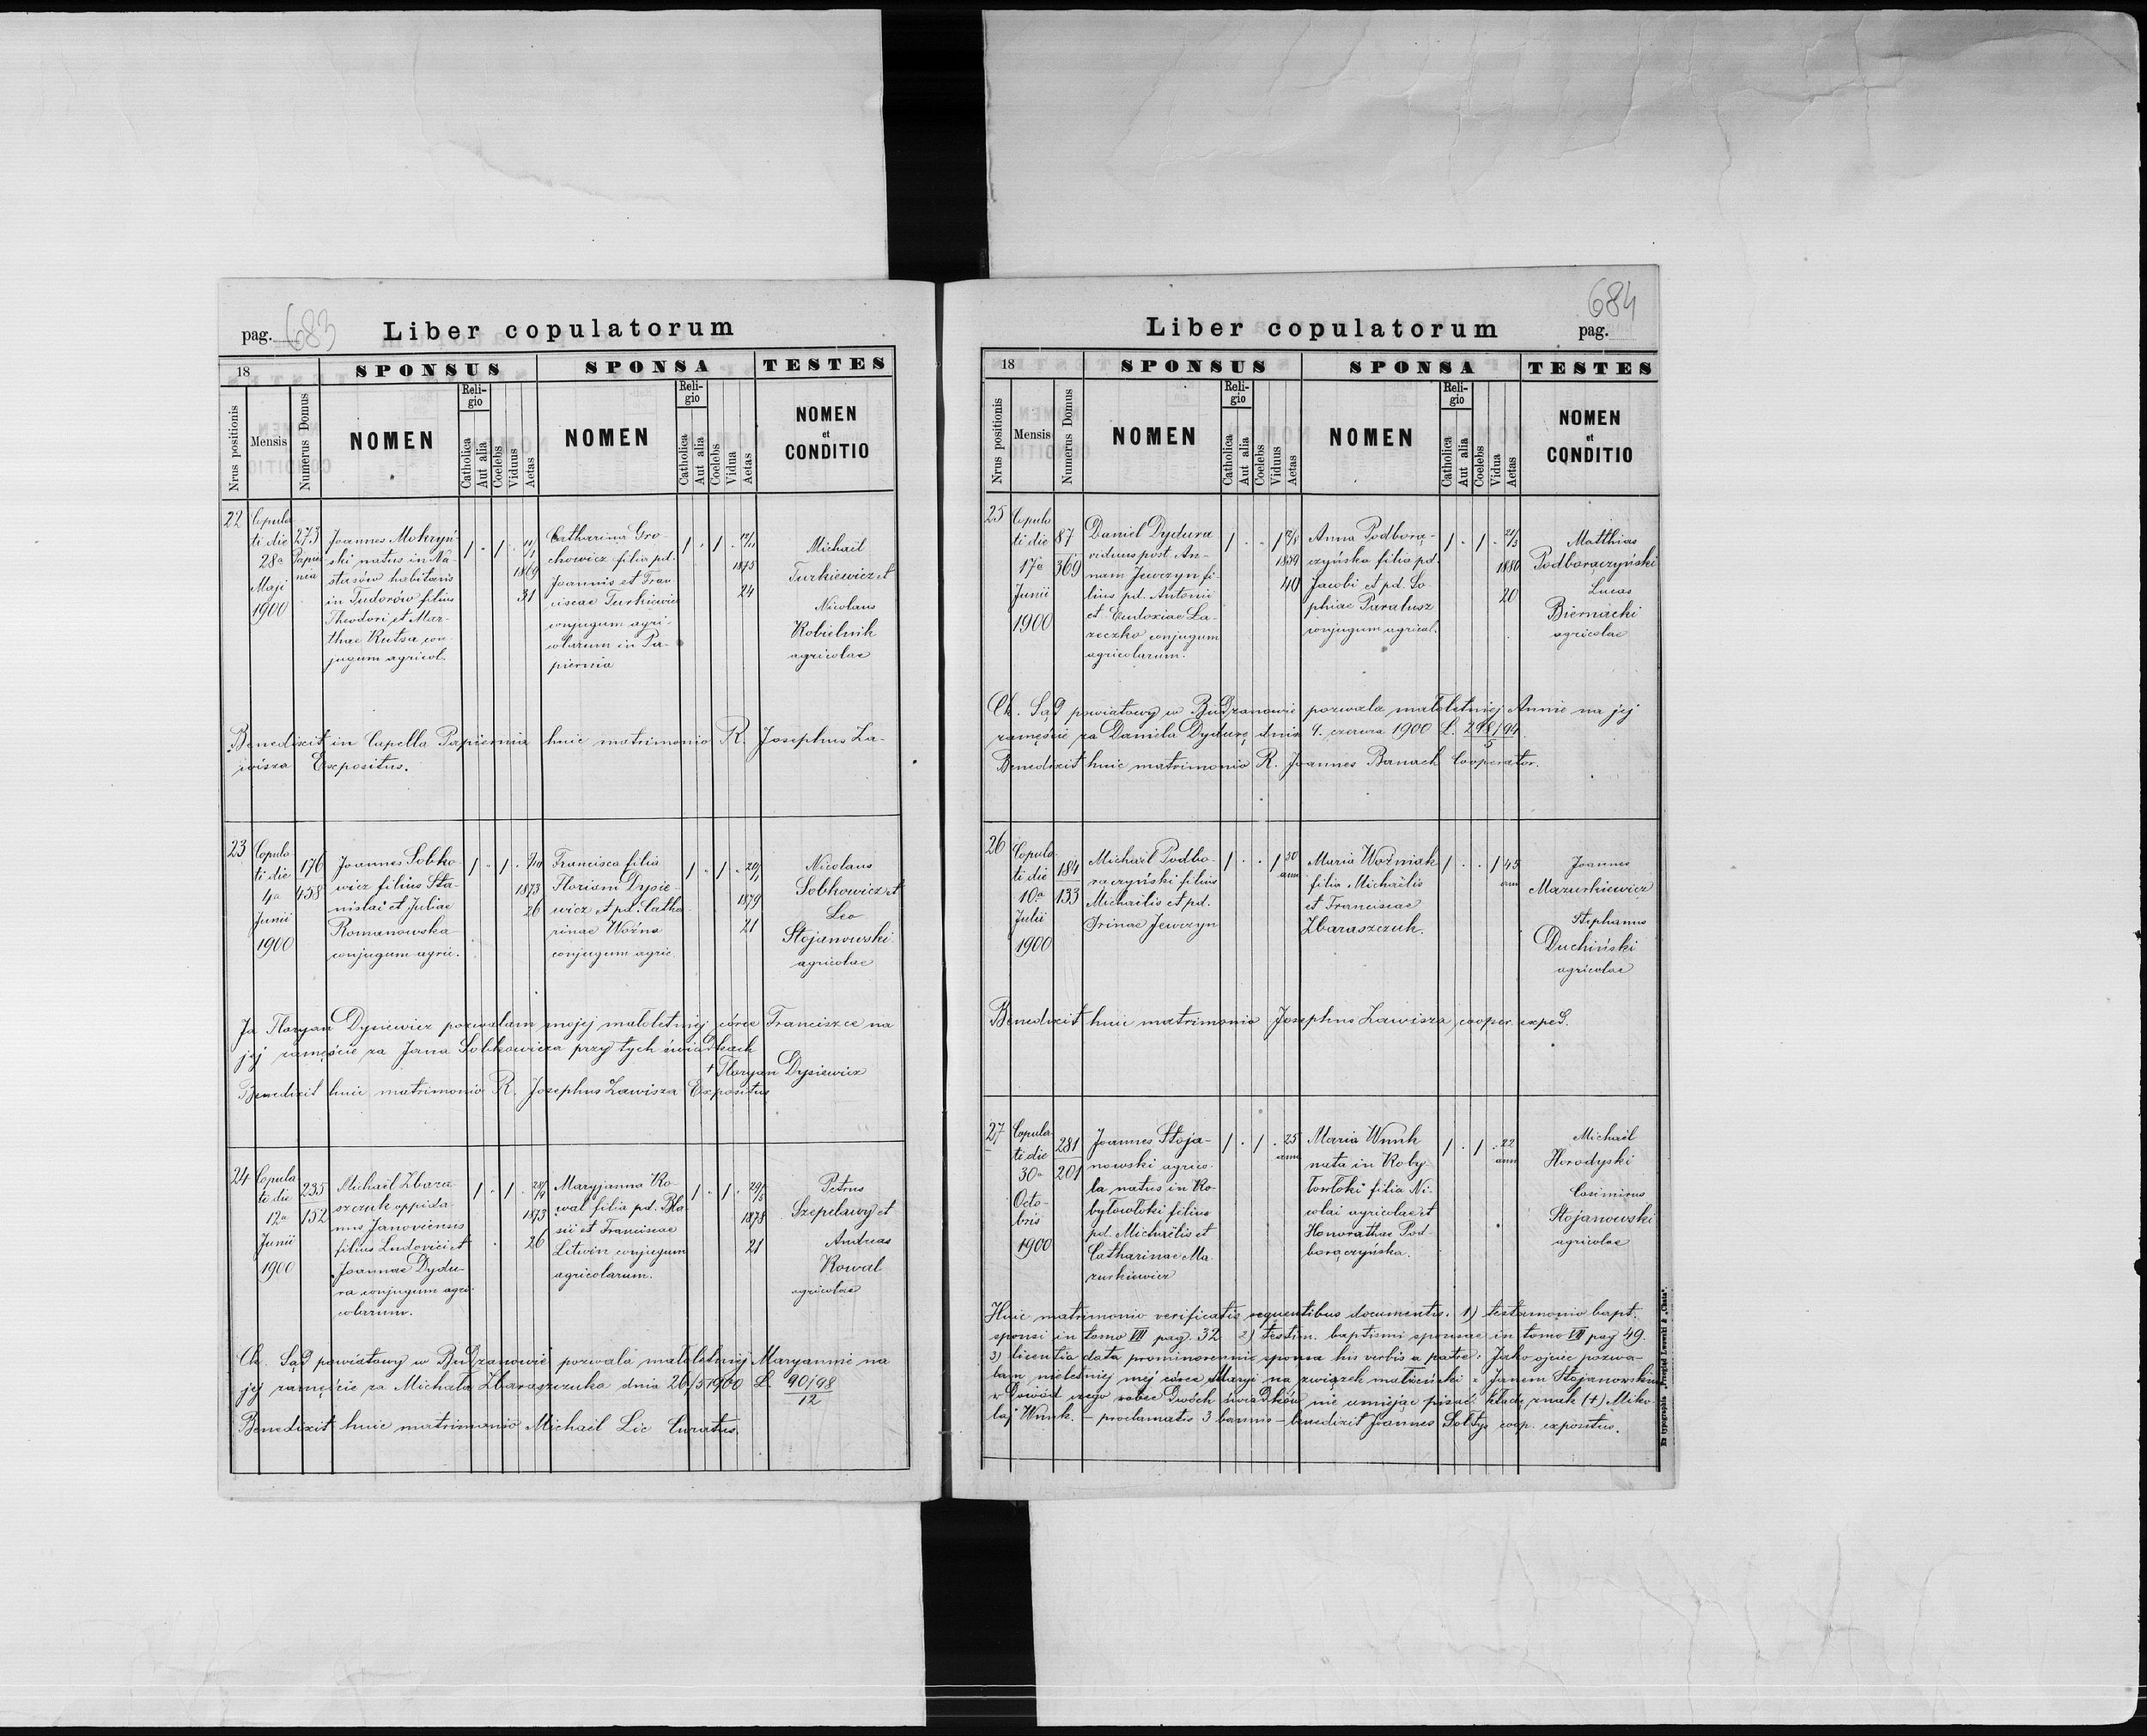 pag. 683
Liber copulatorum
18
SPONSUS
SPONSA
TESTES
Nrus positionis
Mensis
Numerus Domus
NOMEN
Religio
Catholica
Aut alia
Coelebs
Viduus
Aetas
NOMEN
Religio
Catholica
Aut alia
Coelebs
Vidua
Aetas
NOMEN
et
CONDITIO
22
Copula
ti die
28a
Maji
1900
273
Papier
nea
Joannes Mokryń
ski natus in Na-
stasów habitans
in Tudorów filius
Theodori et Mar-
thae Rutsa con-
jugum agricol.
1 . 1 . 11/1
1869
31
Catharina Gro-
chowicz filia pd.
Joannis et Fran-
ciscae Turkiewicz
conjugum agri-
colarum in Pa-
piernia
1 . 1 . 12/11
1875
24
Michael
Turkiewicz et
Nicolaus
Kobielnik
agricolae
Benedixit in Capella Papiernia huic matrimonio R. Josephus Za-
wisza Expositus.
23
Copula
ti die
4a
Junii
1900
176
458
Joannes Sobko-
wicz filius Sta-
nislai et Juliae
Romanowska
conjugum agric.
1 . 1 .
1873
26
Francisca filia
Floriani Dysie-
wicz et pd. Catha
rinae Woźna
conjugum agric.
1 . 1 . 20/1
1879
21
Nicolaus
Sobkowicz et
Leo
Stojanowski
agricolae
Ja Floryan Dysiewicz pozwalam mojej małoletniej córce Franciszce na
jej zamęście za Jana Sobkowicza przy tych świadkach
+ Floryan Dysiewicz
Benedixit huic matrimonio R. Josephus Zawisza Expositus
24
Copula
ti die
12a
Junii
1900
235
152
Michaël Zbara
szczuk oppida-
nus Janoviensis
filius Ludovici et
Joannae Dydu-
ra conjugum agri-
colarum.
1 . 1 . 28/9
1873
26
Maryjanna Ko-
wal filia pd. Bla-
sii et Franciscae
Litwin conjugum
agricolarum.
1 . 1 . 29/5
1878
21
Petrus
Szepelawy et
Andreas
Kowal
agricolae
Ck. Sąd powiatowy w Budzanowie pozwala małoletniej Maryannie na
jej zamęście za Michała Zbaraszczuka dnia 26/5 1900 L. 90/98
12
Benedixit huic matrimonio Michael Lic Curatus.
684
Liber copulatorum
pag.
18
SPONSUS
SPONSA
TESTES
Nrus positionis
Mensis
Numerus Domus
NOMEN
Religio
Catholica
Aut alia
Coelebs
Viduus
Aetas
NOMEN
Religio
Catholica
Aut alia
Coelebs
Vidua
Aetas
NOMEN
et
CONDITIO
25
Copula
ti die
17a
Junii
1900
87
369
Daniel Dydura
viduus post An-
nam Jewczyn fi-
lius pd. Antonii
et Eudoxiae La-
zeczko conjugum
agricolarum.
1 . . 1
1859
40
Anna Podborą-
czyńska filia pd.
Jacobi et pd. So-
phiae Paralusz
conjugum agricol.
1 . 1 . 21/3
1880
20
Matthias
Podboraczyński
Lucas
Biernacki
agricolae
Ck. Sąd powiatowy w Budzanowie pozwala małoletniej Annie na jej
zamęście za Daniela Dydurę dnia 9. czerwca 1900 L. 298/94
5
Benedixit huic matrimonio R. Joannes Banach Cooperator.
26
Copula
ti die
10a
Julii
1900
184
133
Michael Podbo-
raczyński filius
Michaëlis et pd.
Irinae Jewczyn
1 . . 1 50
ann
Maria Woźniak
filia Michaëlis
et Franciscae
Zbaraszczuk.
1 . . 1 45
ann
Joannes
Mazurkiewicz
Stephanus
Duchiński
agricolae
Benedixit huic matrimonio Josephus Zawisza cooper. exped.
27
Copula
ti die
30a
Octo-
bris
1900
281
201
Joannes Stoja-
nowski agrico-
la natus in Ko-
byłowłoki filius
pd. Michaëlis et
Catharinae Ma-
zurkiewicz
1 . 1 . 25
ann
Maria Wnuk
nata in Koby-
łowłoki filia Ni-
colai agricolae et
Honorathae Pod-
borączyńska.
1 . 1 . 22
ann
Michaël
Horodyski
Casimirus
Stojanowski
agricolae
Huic matrimonio verificatis sequentibus documentis: 1) testamonio bapt.
sponsi in tomo VII pag. 32 2) testim. baptismi sponsae in tomo VII pag 49.
3) licentia data pro minorennis sponsa his verbis a patre: Jako ojciec pozwa-
lam nieletniej mej córce Maryi na związek małżeński z Janem Stojanowskim
w dowód czego wobec dwóch świadków nie umiejąc pisać kładę znak (+) Miko-
łaj Wnuk. – proclamatis 3 bannis – benedixit Joannes Sołtys coop. expositus.
Ex typographia „Przegląd Lwowski & „Chata".